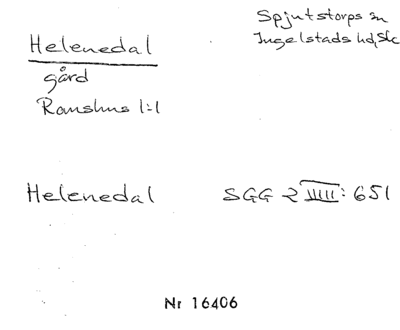 Helenedal
gård
Ramshus 1:1
Spjutstorps sn
Ingelstads hd, Sk
Helenedal
SGG 2 IIIII: 651
Nr 16406